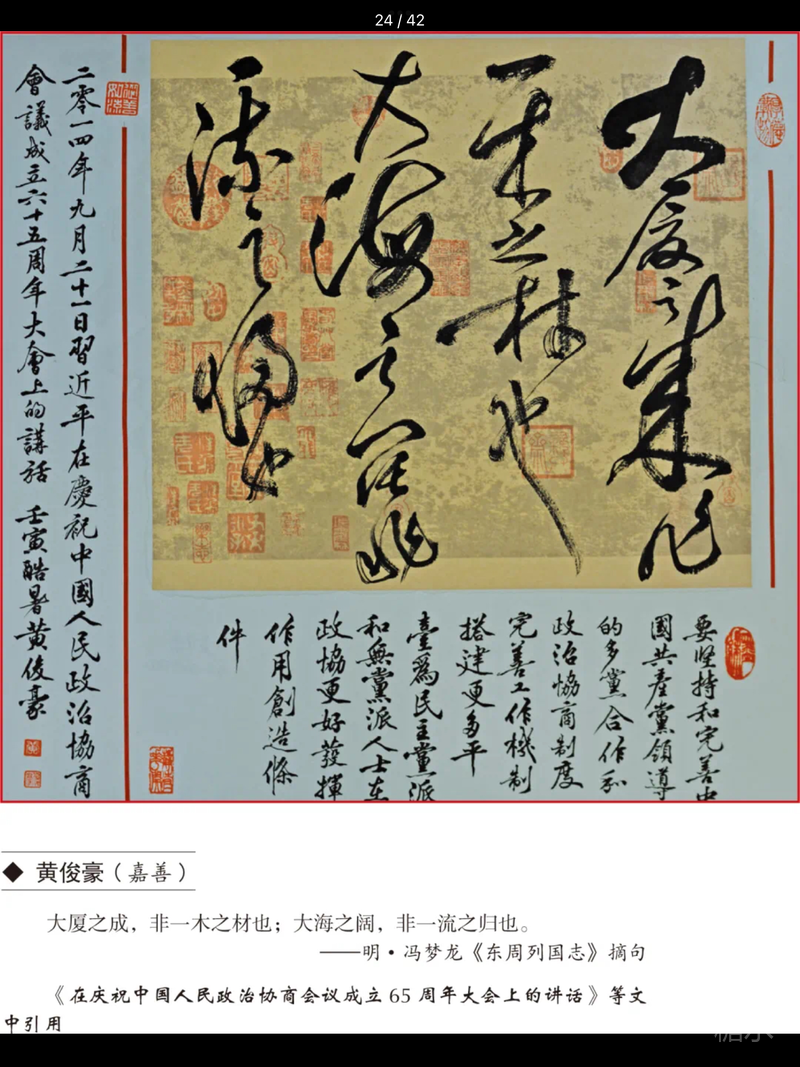 24 / 42
大厦之成非
一木之材也
大海之闊非
一流之歸也
要坚持和完善中
國共產黨領導
的多黨合作和
政治協商制度
完善工作機制
搭建更多平
臺爲民主黨派
和無黨派人士在
政協更好發揮
作用創造條
件
二零一四年九月二十一日習近平在慶祝中國人民政治協商
會議成立六十五周年大會上的講話 壬寅酷暑黄俊豪
◆ 黄俊豪（嘉善）
大厦之成，非一木之材也；大海之阔，非一流之归也。
——明·冯梦龙《东周列国志》摘句
《在庆祝中国人民政治协商会议成立 65 周年大会上的讲话》等文
中引用